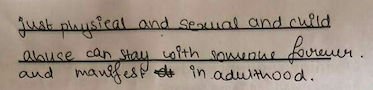 just physical and sexual and child
abuse can stay with someone forever.
and manifest in adulthood.